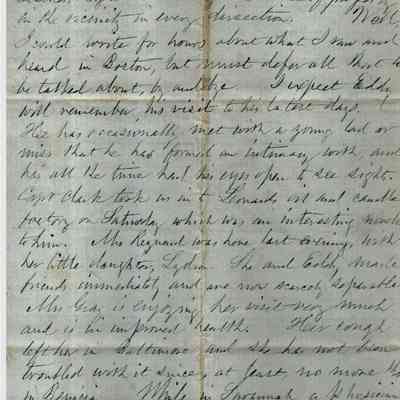 in the vicinity in every direction. Well
I could write for hours about what I saw and
heard in Boston, but must defer all that to
be talked about, by and bye I expect Eddy
will remember his visit to his latest days.
He has occasionally met with a young lad or
miss that he has formed an intimacy with, and
has all the time had his eyes open to see sight.
Capt Clark took us into Leonards oil and candle
factory on Saturday which was an interesting
to him. Mrs Reynard was here last evening with
her little daughter, Lydia. She and Eddy made
friends immediately and are now scarcely seperable
Mrs Gray is enjoying her visit very much
and is in improved health. Her cough
left her in Baltimore and she has not been
troubled with it since, at least no more
in Benicia. While in Savannah a Physician